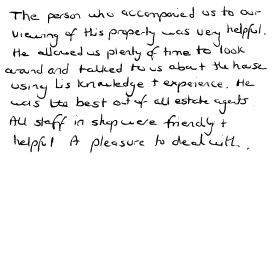 The person who accompanied us to our
viewing of this property was very helpful.
He allowed us plenty of time to look
around and talked to us about the house
using his knowledge + experience. He
was the best out of all estate agents.
All staff in shop were friendly +
helpful A pleasure to deal with.